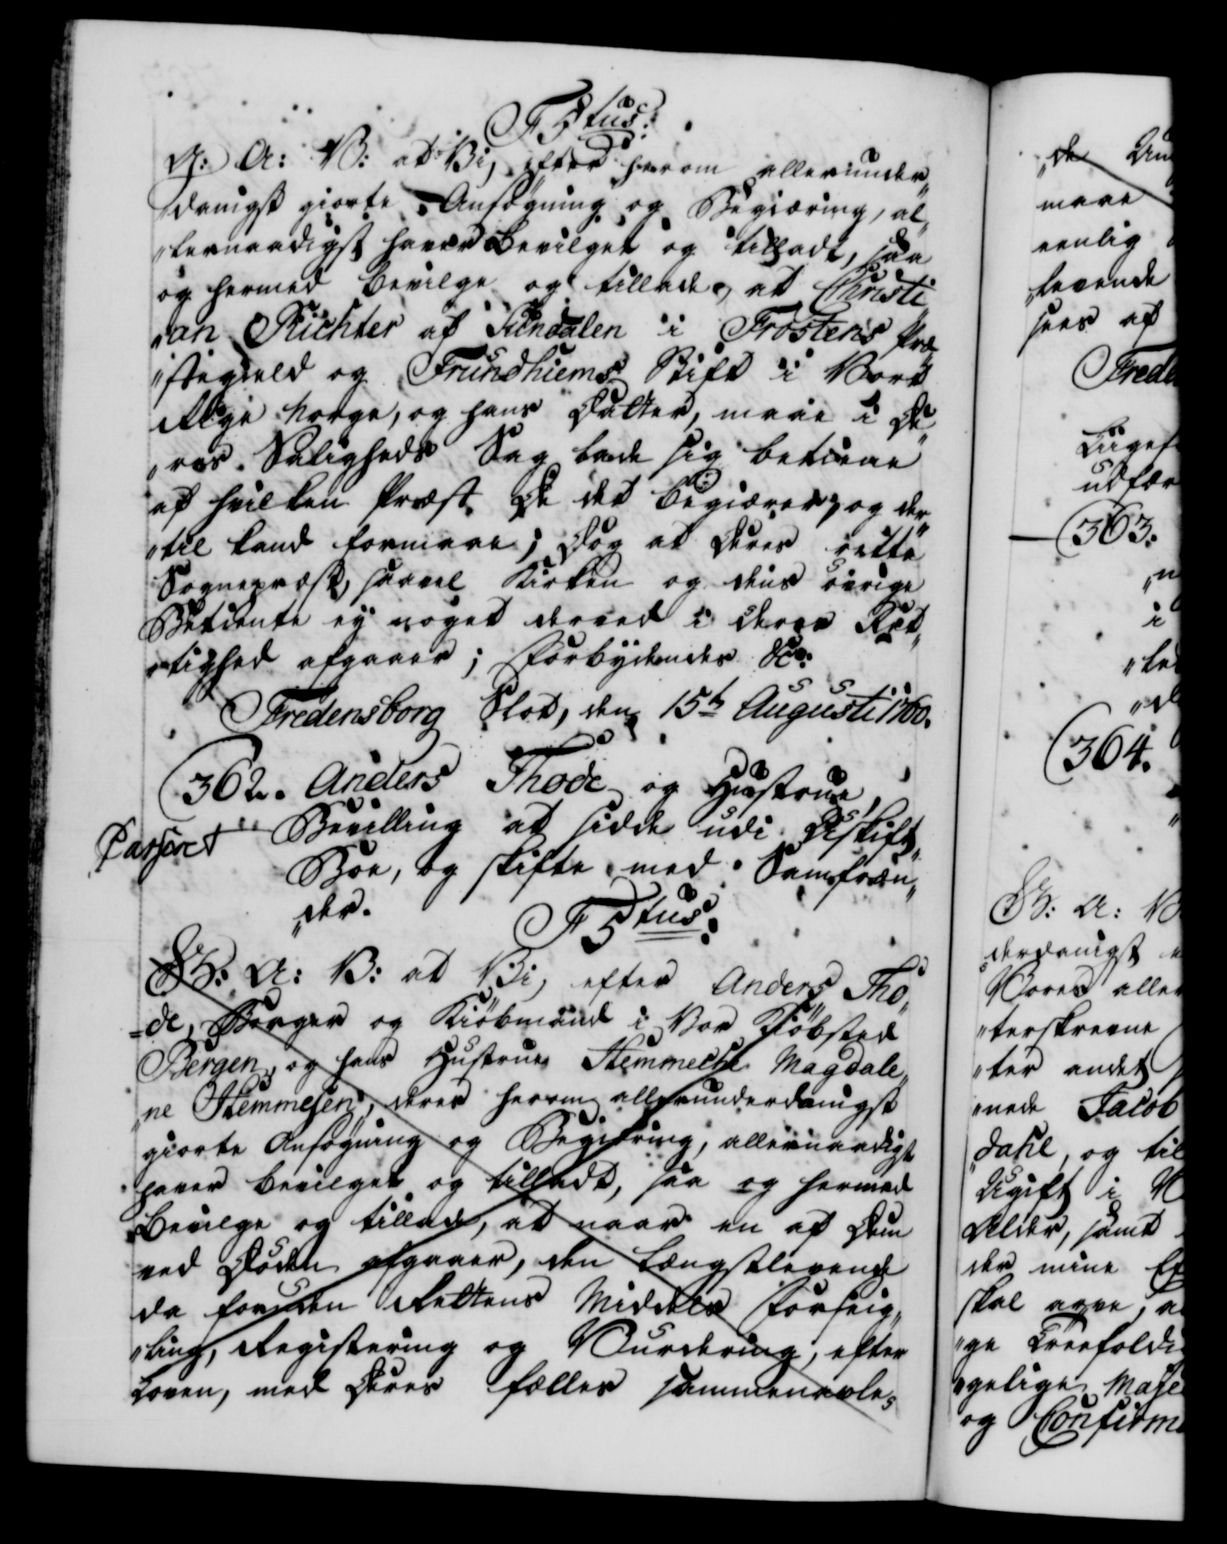 F 5tus:
G: A: V: at Vi, efter herom allerunder„
„danigst giorte Ansøgning og Begiæring, al„
„lernaadigst haver Bevilget og tilladt, saa
og hermed bevilge og tillade, at Christi„
„an Richter af Sundalen i Frostens Præ„
„stegield og Trundhiems Stift i Vort
Rige Norge, og hans Datter, maae i De„
„res Saligheds Sag lade sig betiene
af hvilken Præst De det begiærer, og der„
„til kand formaae; Dog at Deres rette
Sognepræst, saavel Kirken og dens øvrige
Betiente ey noget derved i deres Ret„
„tighed afgaaer; Forbydendes &c:
Fredensborg Slot, den 15de Augusti 1760.
362. Anders Thode og Hustrue,
Bevilling at sidde udi Uskift„
Casseret
Boe, og skifte med Samfræn„
„der.
F 5tus:
G: A: V: at Vi, efter Anders Tho„
„de, Borger og Kiøbmand i Vor Kiøbsted
Bergen, og hans Hustrue Stemmeche Magdale„
„ne Stemmesen, deres herom allerunderdanigst
giorte Ansøgning og Begiæring, allernaadigst
haver bevilget og tilladt, saa og hermed
Bevilge og tillade, at naar en af Dem
ved Døden afgaaer, den Længstlevende
da foruden Rettens Middels Forseig„
„ling, Registering og Vurdering, efter
Loven, med Deres fælles sammenavle„
de
maae
eenlig
„levende
sees af
Frede
Ligesaa
udfær
363.
i
364.
G: A: V
derdanigst
Vores aller
„terskrevne
„ter andet
„nede Jacob
„dahl, og til
Ugift i
Alder, samt
der mine Ef
skal arve, a
„ge Treefoldi
„gelige Maje
og Confirme